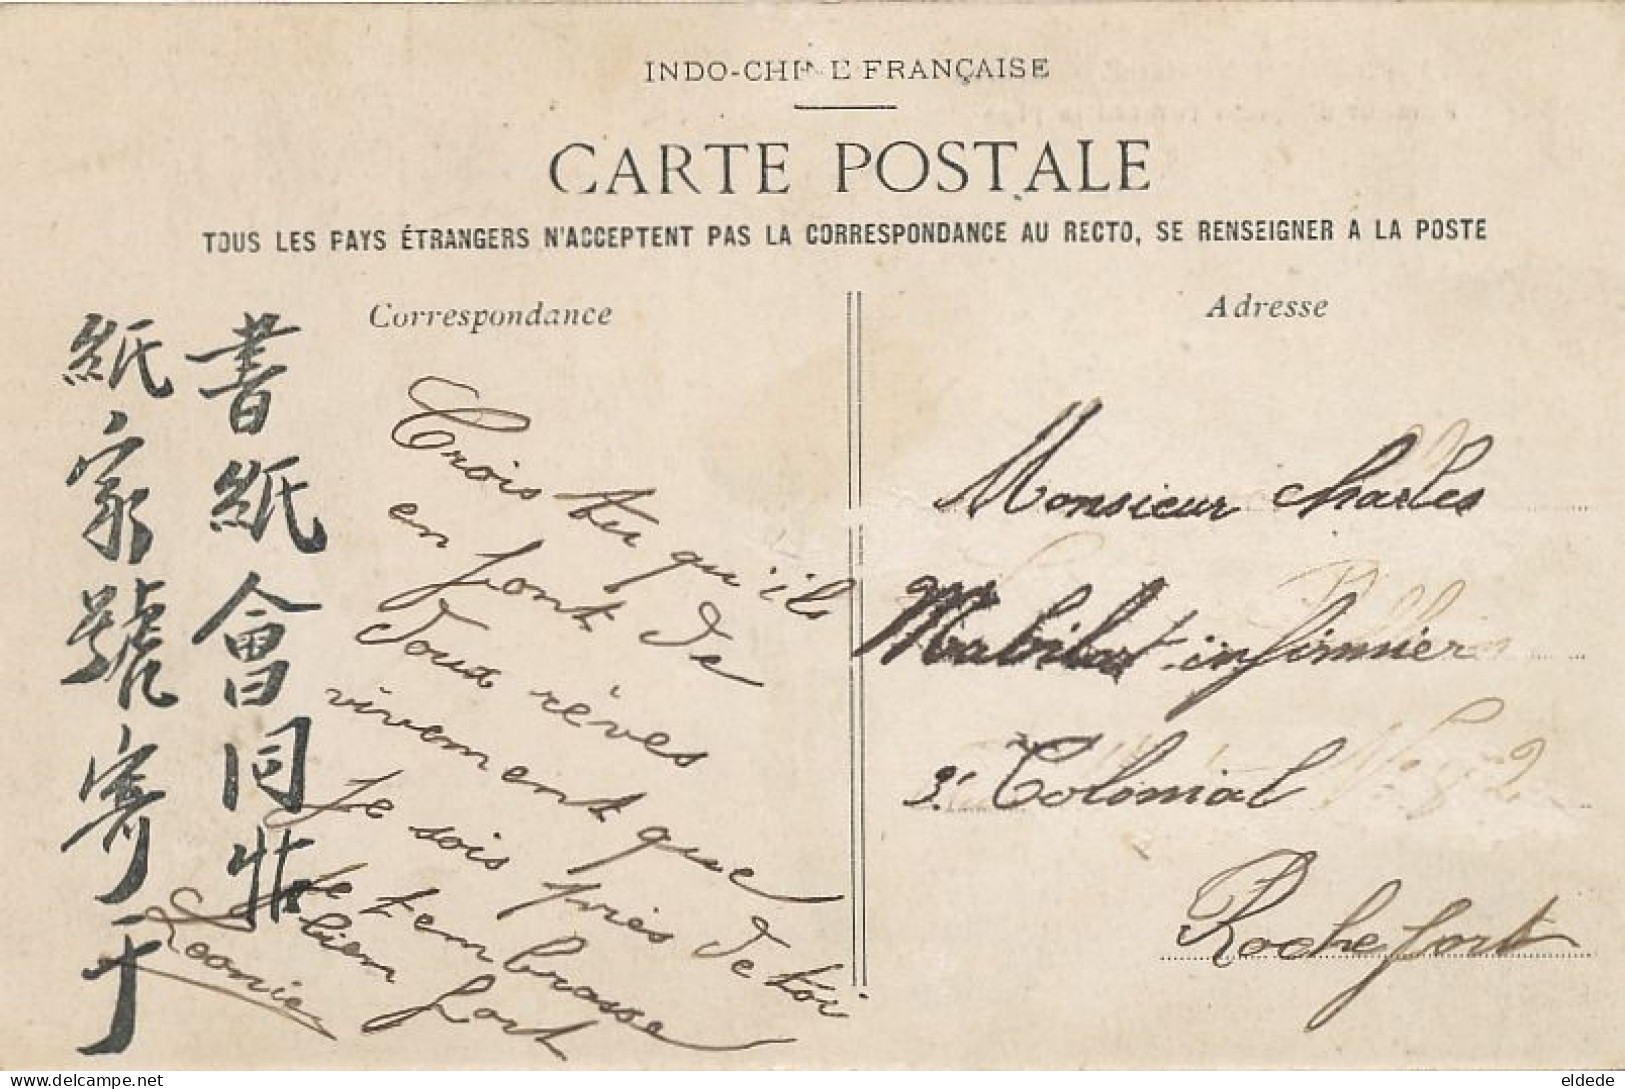 INDO-CHINE FRANÇAISE
CARTE POSTALE
TOUS LES PAYS ÉTRANGERS N'ACCEPTENT PAS LA CORRESPONDANCE AU RECTO, SE RENSEIGNER A LA POSTE
Correspondance
書紙會同
紙家號寄于
Crois tu qu'ils
en font de
doux rêves
vivement que
je sois près de toi
Je t'embrasse
bien fort
Leonie
Adresse
Monsieur Charles
Mabilat infirmier
3e Colonial
Rochefort
eldede